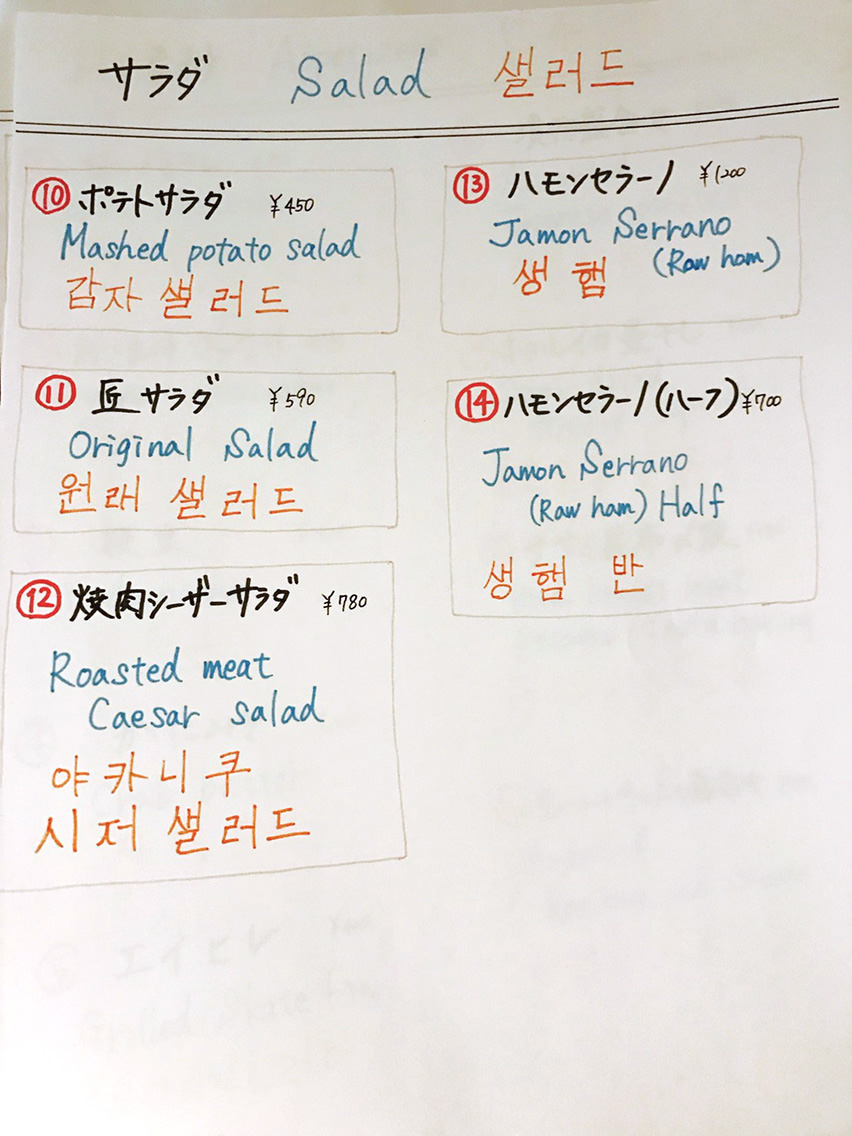 サラダ Salad 샐러드
⑩ ポテトサラダ ¥450
Mashed potato salad
감자 샐러드
⑪ 匠サラダ ¥590
Original Salad
원래 샐러드
⑫ 焼肉シーザーサラダ ¥780
Roasted meat
Caesar salad
야카니쿠
시저 샐러드
⑬ ハモンセラーノ ¥1200
Jamon Serrano
(Raw ham)
생햄
⑭ ハモンセラーノ(ハーフ) ¥700
Jamon Serrano
(Raw ham) Half
생햄 반
エイヒレ